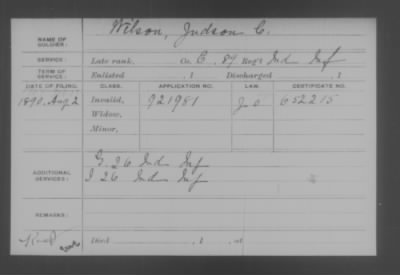 NAME OF SOLDIER: Wilson, Judson C.
SERVICE: Late rank, Co. C, 89 Reg't Ind Inf
TERM OF SERVICE: Enlisted , 1 Discharged , 1
DATE OF FILING. CLASS. APPLICATION NO. LAW. CERTIFICATE NO.
1890, Aug 2 Invalid, 921981 652215
Widow,
Minor,
ADDITIONAL SERVICES: G. 26 Ind Inf
I 26 Ind Inf
REMARKS:
Died , 1 , at